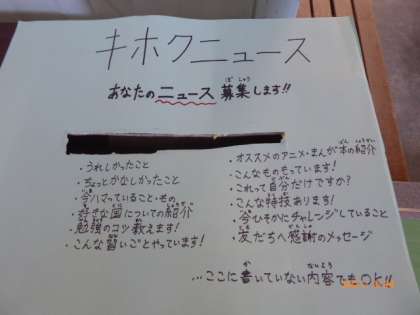 キホクニュース
あなたのニュース募集します!!
・うれしかったこと
・ちょっとかなしかったこと
・今ハマっていること・もの
・好きな国についての紹介
・勉強のコツ教えます!
・こんな習いごとやっています!
・オススメのアニメ・まんが本の紹介
・こんなものもっています!
・これって自分だけですか?
・こんな特技あります!
・今ひそかにチャレンジしていること
・友だちへ感謝のメッセージ
...ここに書いていない内容でもOK!!